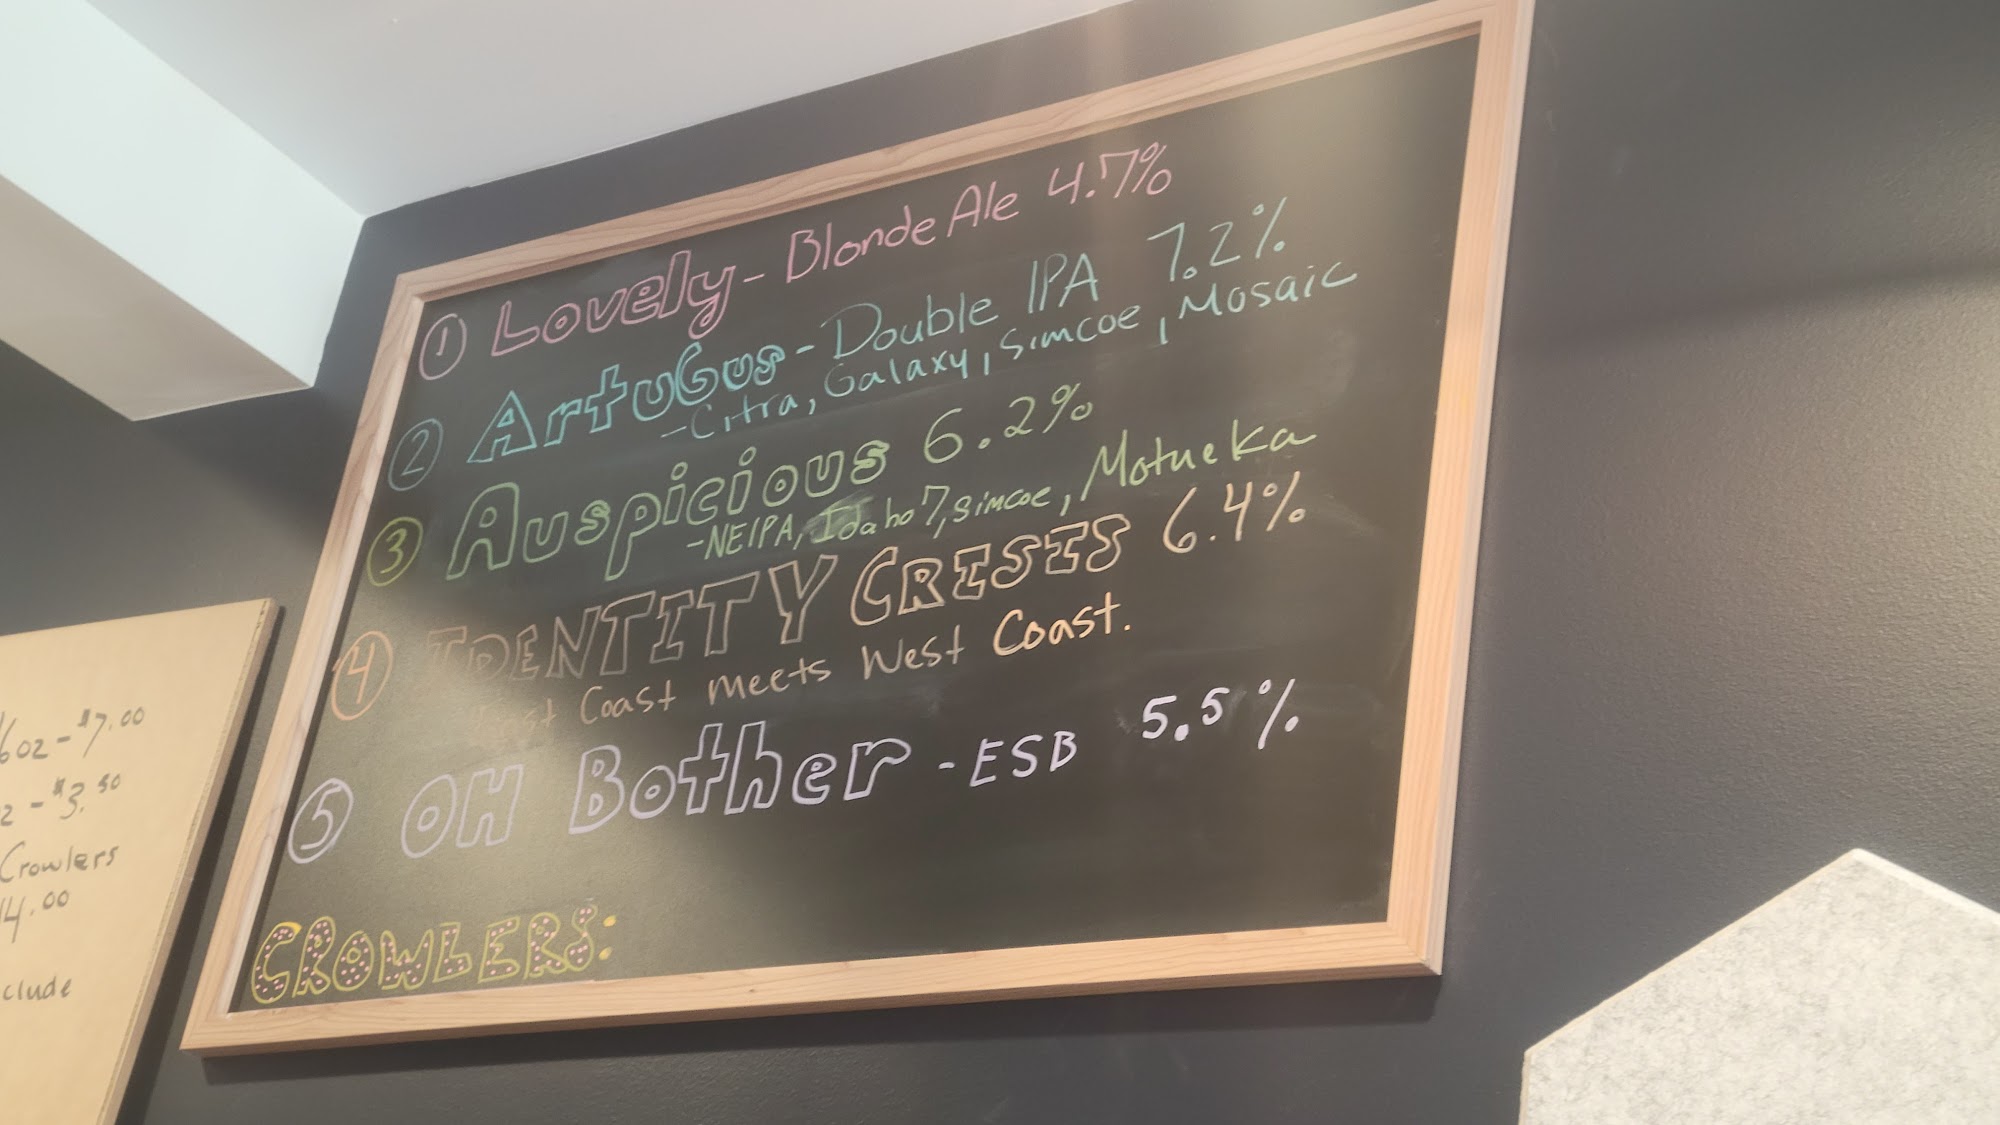 ① Lovely - Blonde Ale 4.7%
② ArtuGus - Double IPA 7.2%
- Citra, Galaxy, Simcoe, Mosaic
③ Auspicious 6.2%
- NEIPA, Idaho 7, Simcoe, Motueka
④ IDENTITY CRISIS 6.4%
East Coast meets West Coast.
⑤ OH Bother - ESB 5.5%
CROWLERS:
6oz - $7.00
- $3.50
Crowlers
14.00
clude